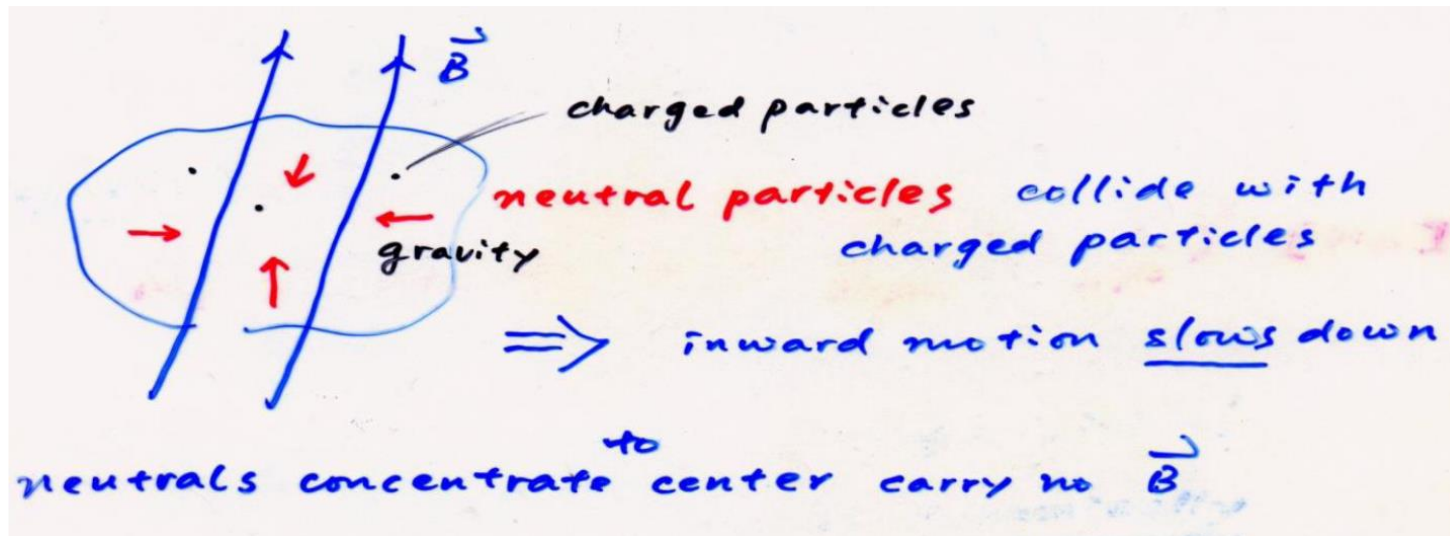 B
charged particles
neutral particles collide with
charged particles
gravity
⇒ inward motion slows down
neutrals concentrate to center carry no B